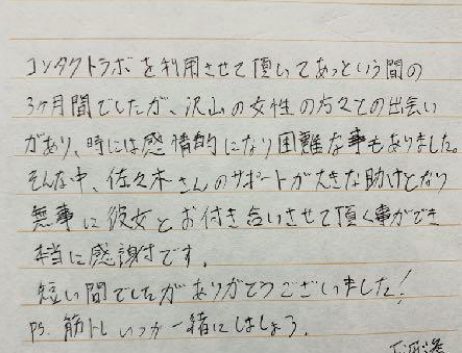 コンタクトラボを利用させて頂いてあっという間の
3ヶ月間でしたが、沢山の女性の方々との出会い
があり、時には感情的になり困難な事もありました。
そんな中、佐々木さんのサポートが大きな助けとなり
無事に彼女とお付き合いさせて頂く事ができ
本当に感謝です。
短い間でしたがありがとうございました!
PS. 筋トレいつか一緒にしましょう。